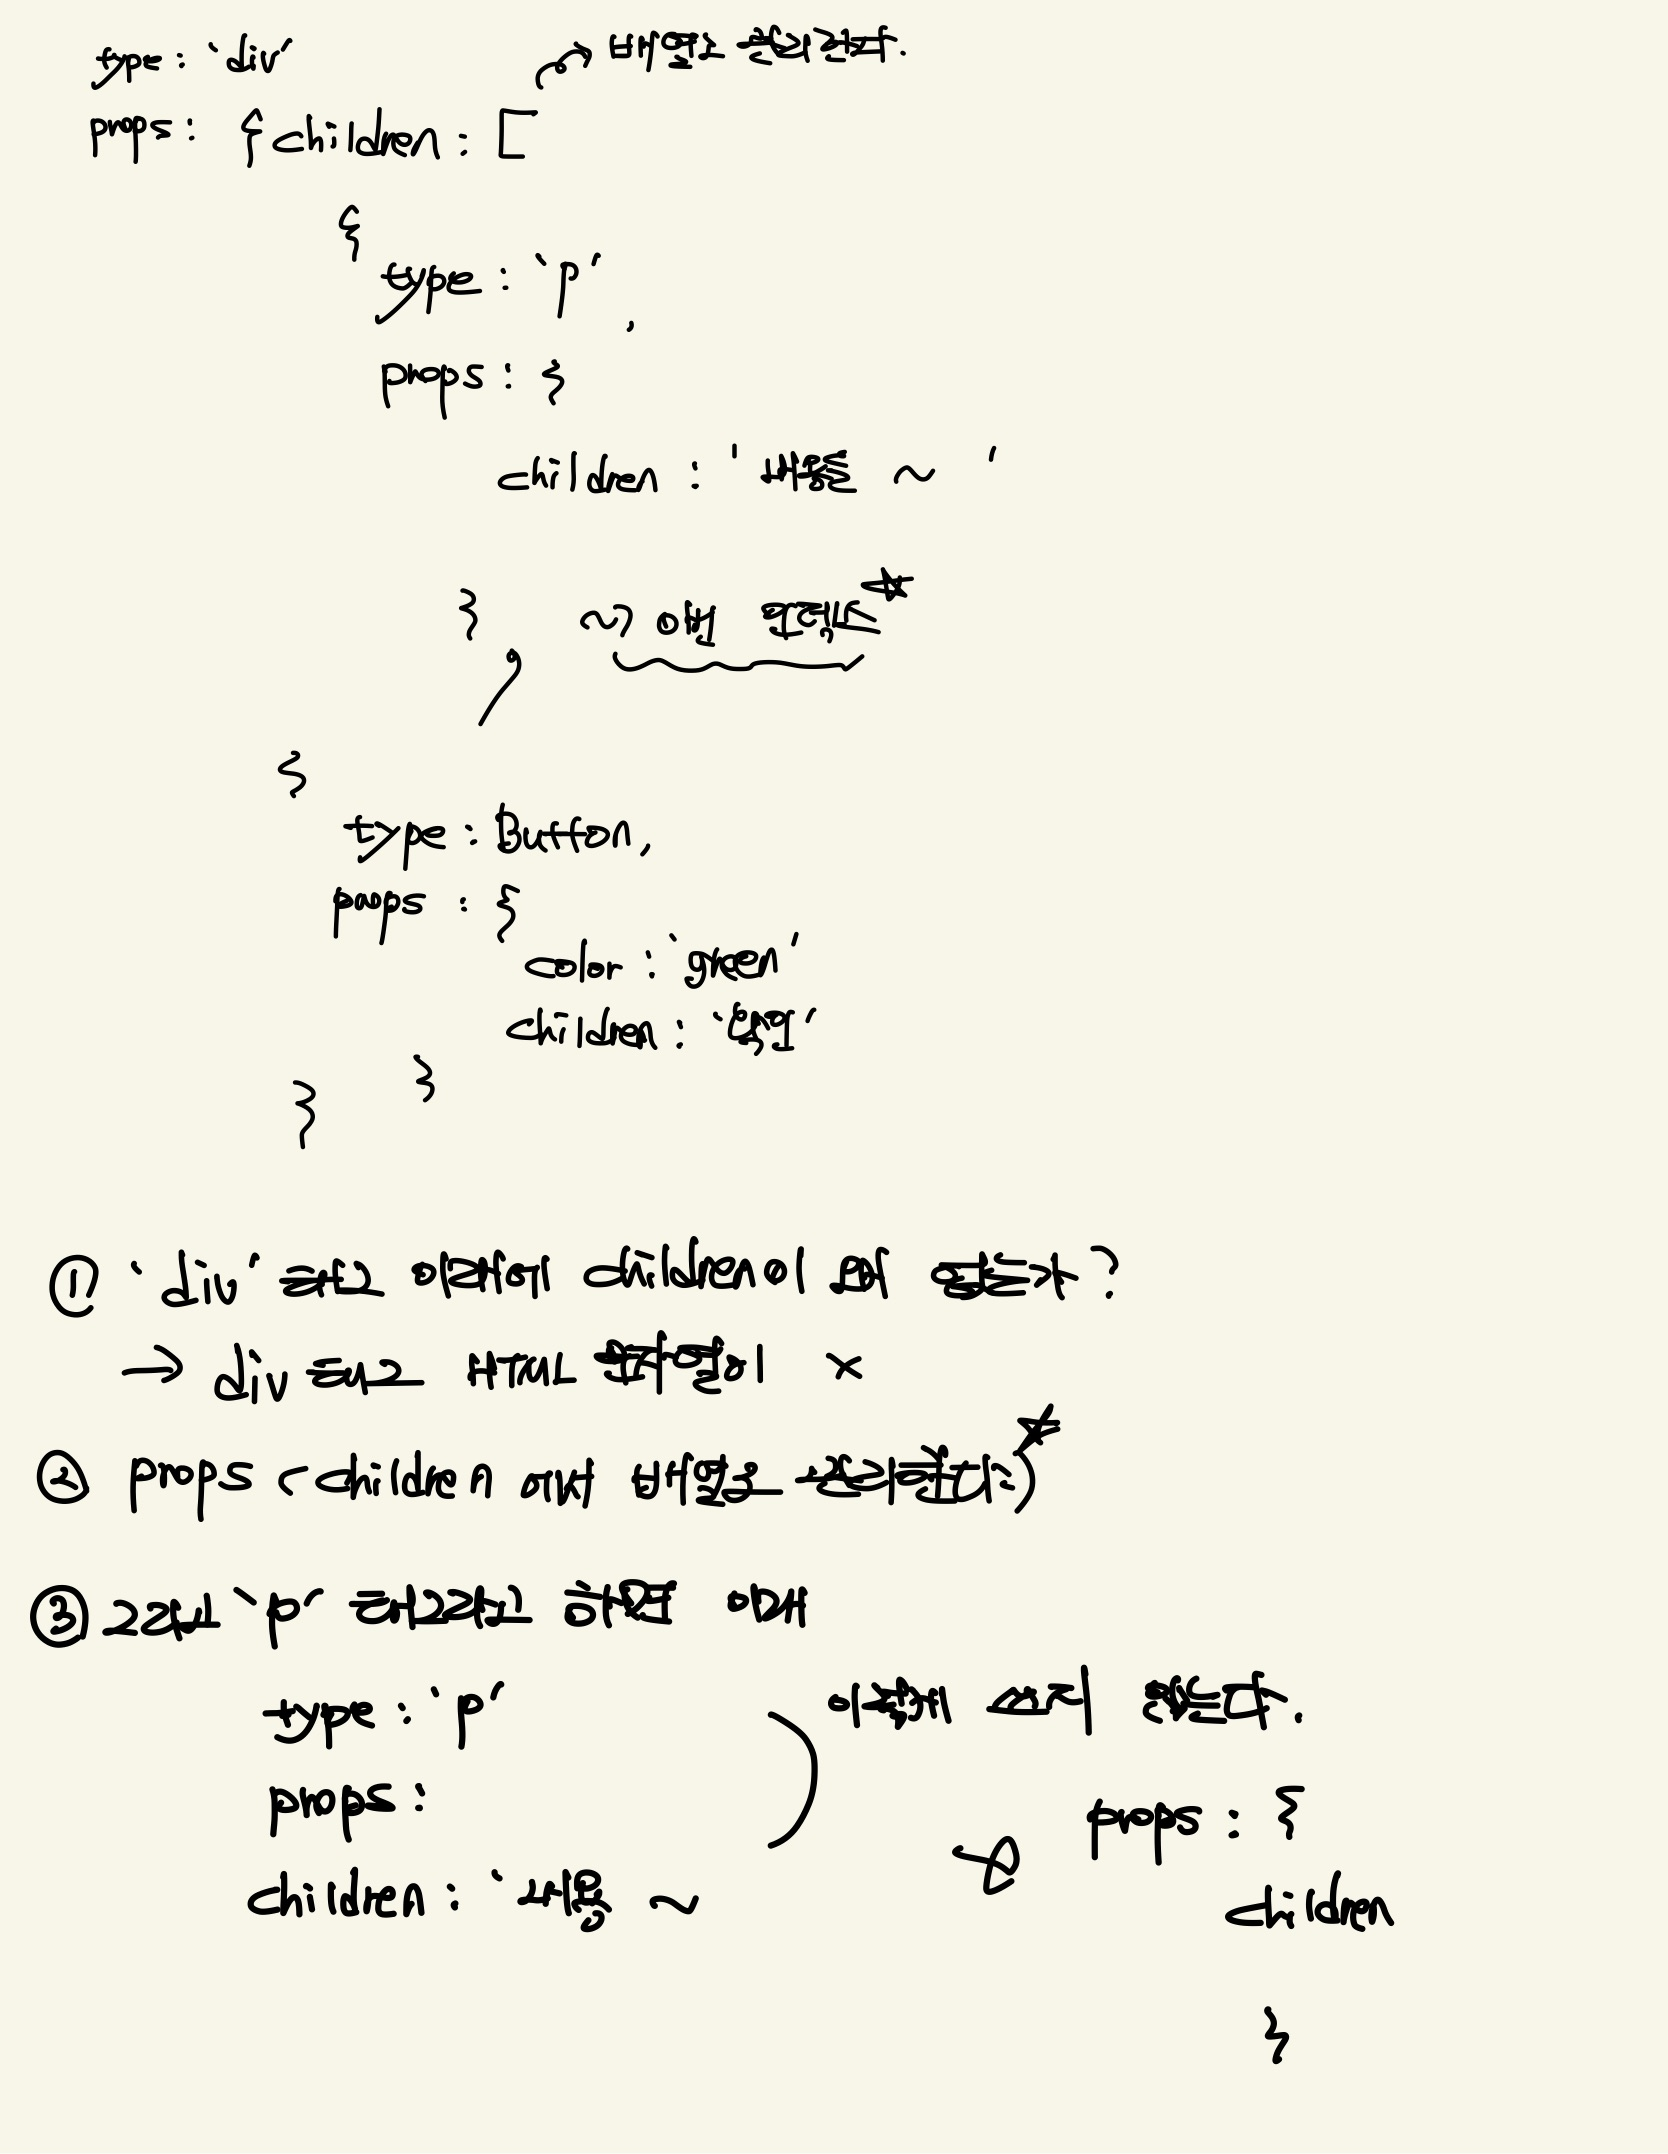 type : 'div'
배열로 관리한다.
props : { children : [
{
type : 'p'
,
props : {
children : ' 내용은 ~ '
}
~> 0번 인덱스
,
{
type : Button,
props : {
color : 'green'
children : '확인'
}
}
① 'div' 하고 아래에 children이 왜 없는가?
→ div 태그 HTML 문자열이 x
② props < children 에서 배열로 관리한다)
③ 그리고 'p' 태그라고 하면 이때
type : 'p'
이렇게 쓰지 않는다.
props :
props : {
children : '내용 ~
children
}